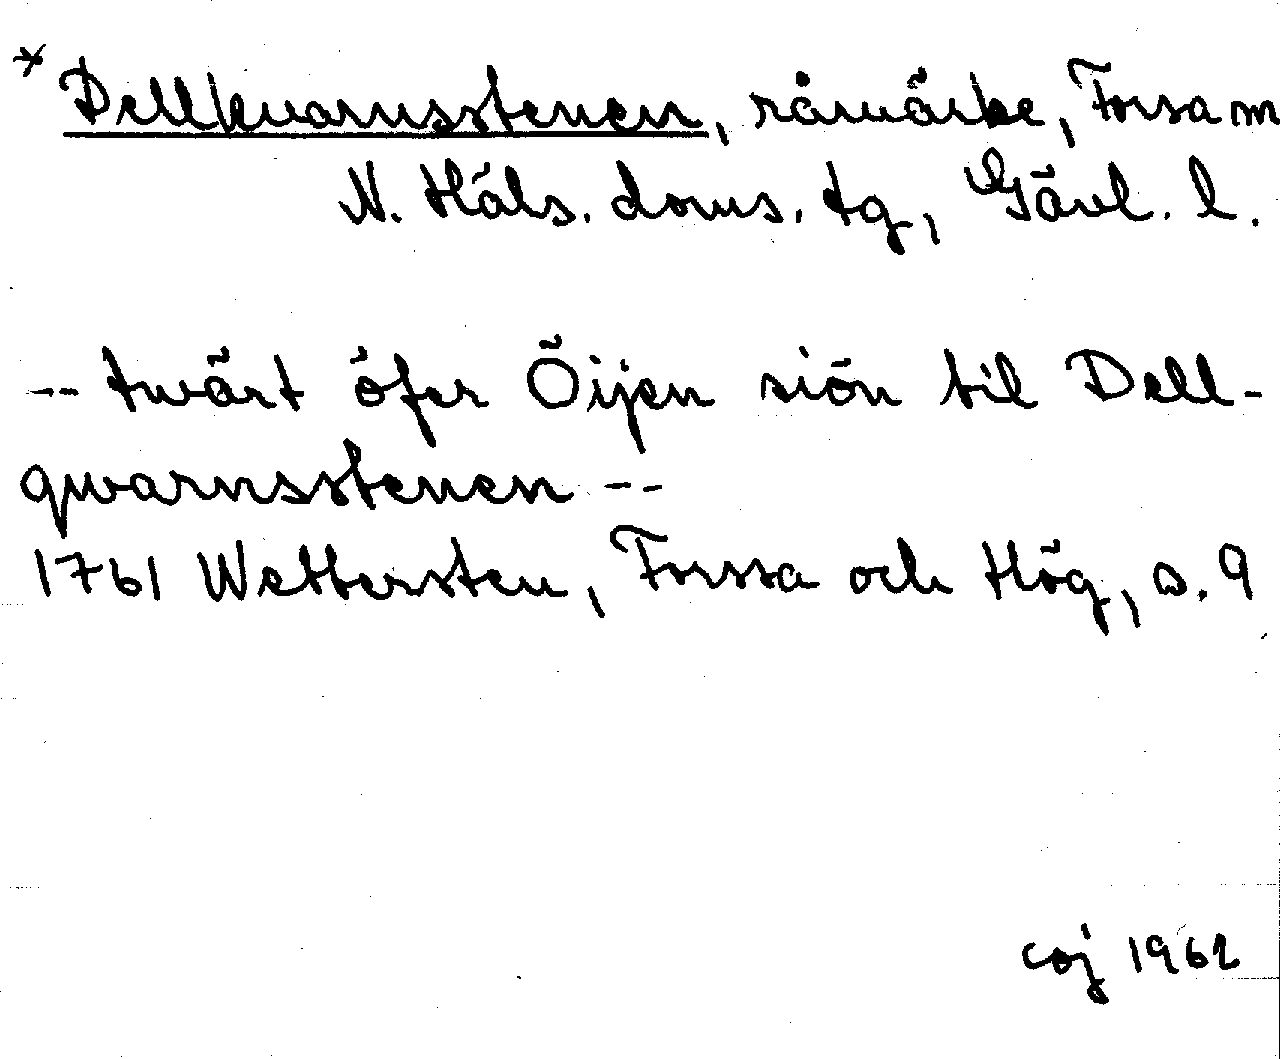 * Dellkvarnsstenen, råmärke, Forsa m
N. Häls. doms. tg, Gävl. l.
-- twärt öfer Öijen siön til Dell-
qwarnsstenen --
1761 Wettersten, Forssa och Hög, s. 9
coj 1962